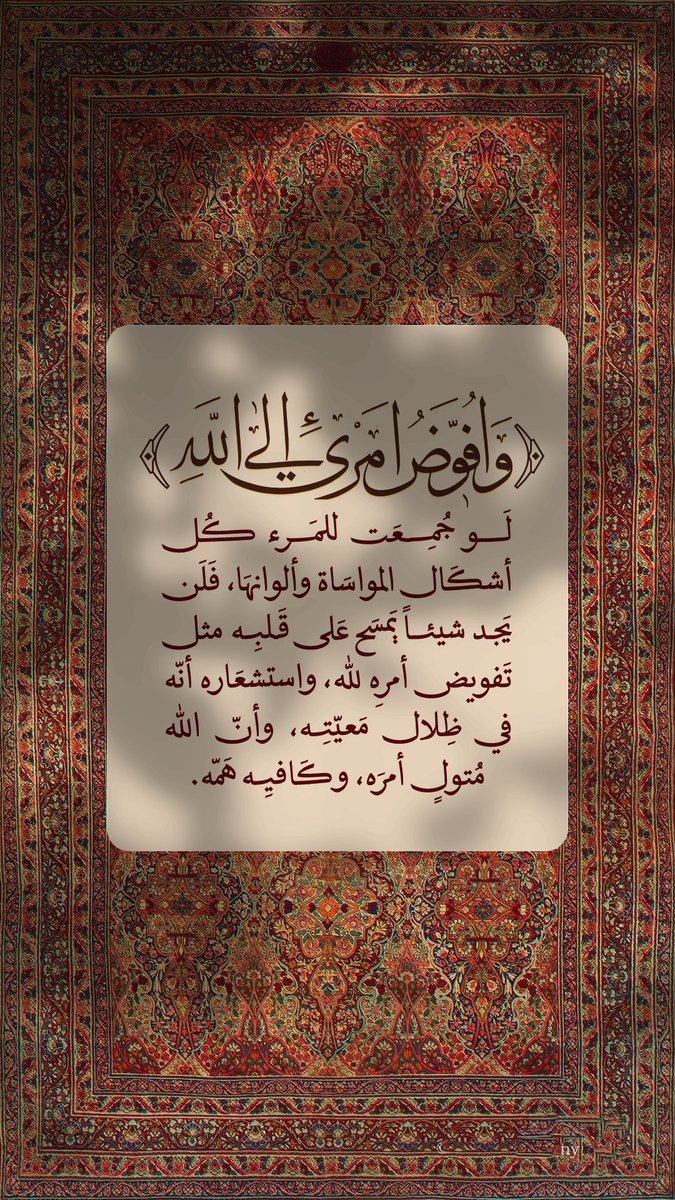 ﴿وَأُفَوِّضُ أَمْرِيٓ إِلَى اللَّهِ﴾
لَـو جُمِـعَت للمَـرء كُل
أشكَال المواسَاة وألوانهَا، فَلَن
يَجد شيئـاً يَمسَح عَلى قَلبِـه مثل
تَفويض أمرِه لله، واستشعَاره أنّه
في ظِلال مَعيّتِـه، وأنّ الله
مُتولٍ أمرَه، وكَافيِـه هَمّه.
hy